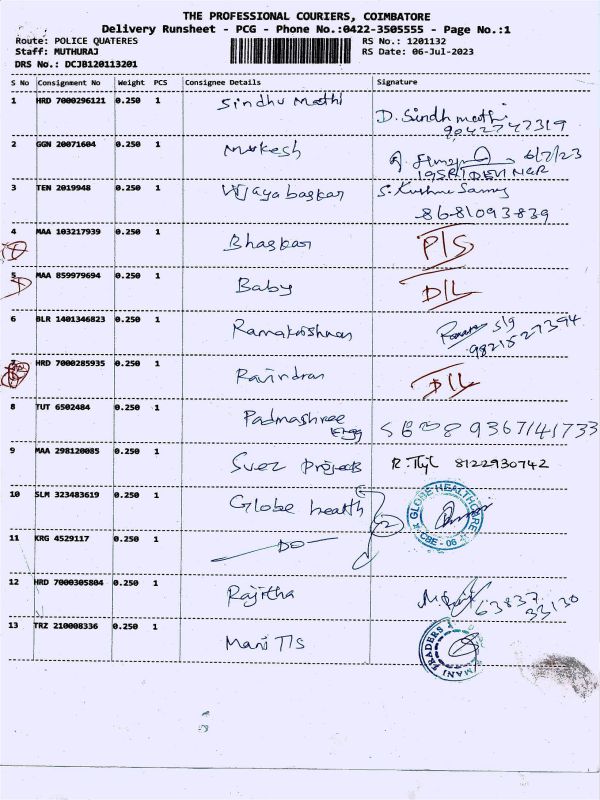 THE PROFESSIONAL COURIERS, COIMBATORE
Delivery Runsheet - PCG - Phone No.:0422-3505555 - Page No.:1
Route: POLICE QUATERES RS No.: 1201132
Staff: MUTHURAJ RS Date: 06-Jul-2023
DRS No.: DCJB120113201
S No Consignment No Weight PCS Consignee Details Signature
1 HRD 7000296121 0.250 1 Sindhu Mathi D. Sindhmathi
9042747319
2 GGN 20071604 0.250 1 Mukesh 6/7/23
19 SRI DEVI NGR
3 TEN 2019948 0.250 1 Vijayabaskar S. Krishna Samy
8681093839
4 MAA 103217939 0.250 1 Bhaskar P/S
5 MAA 859979694 0.250 1 Baby D/L
6 BLR 1401346823 0.250 1 Ramakrishnan
9821527394
7 HRD 7000285935 0.250 1 Ravindran D/L
8 TUT 6502484 0.250 1 Padmashree
Engg 9367141733
9 MAA 298120085 0.250 1 Suez Projects 8122930742
10 SLM 323483619 0.250 1 Globe health GLOBE HEALTHCARE
CBE - 06
2
11 KRG 4529117 0.250 1 DO
12 HRD 7000305804 0.250 1 Rajitha 63837
33130
13 TRZ 210008336 0.250 1 Mani T/S MANI TRADERS